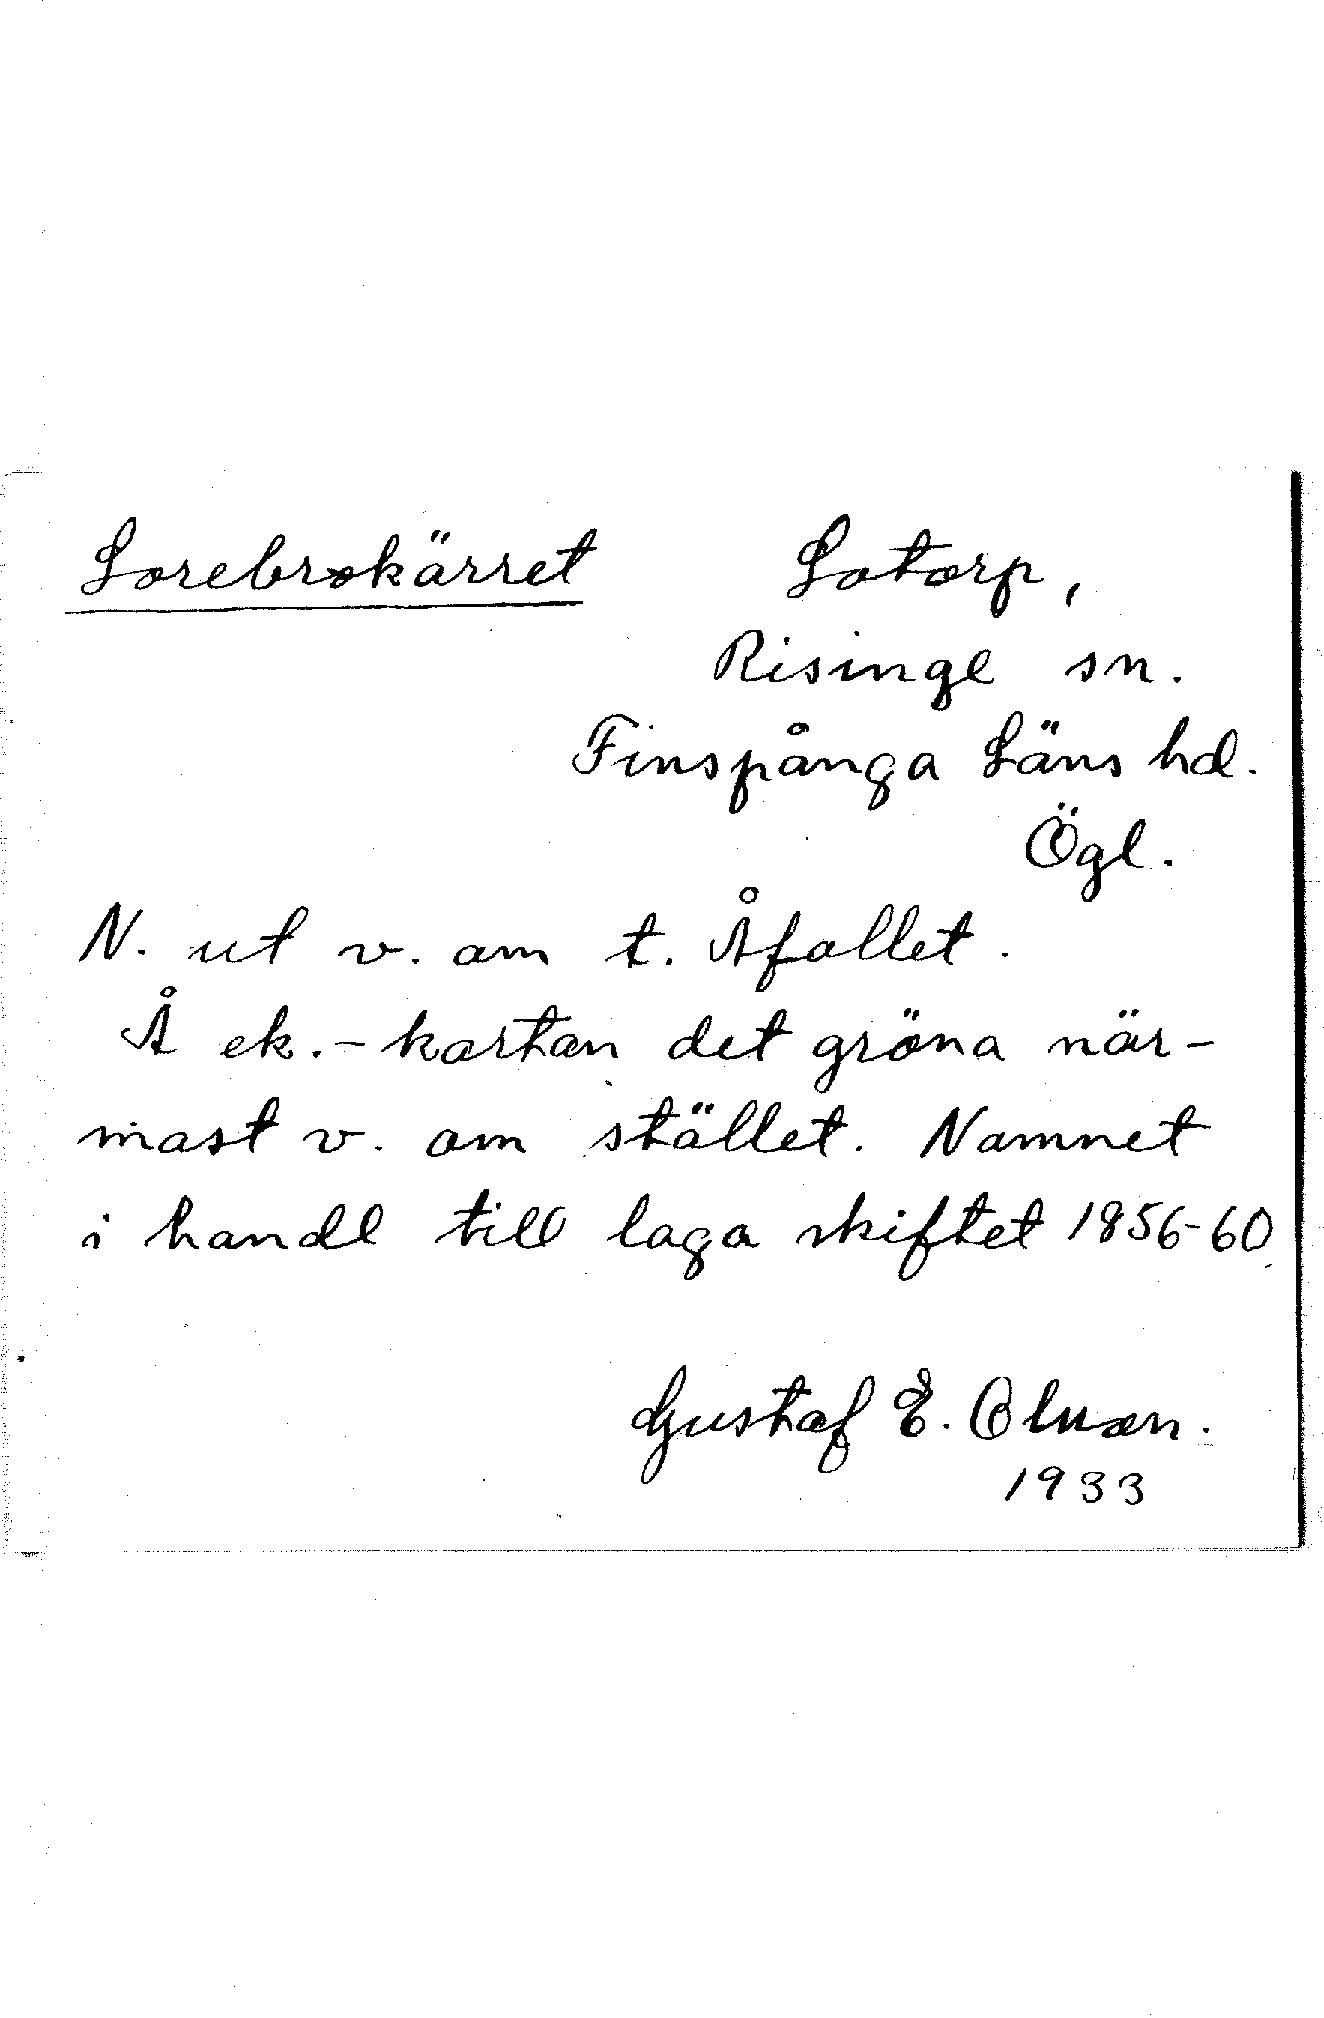 Lorebrokärret Lotorp,
Risinge sn.
Finspånga Läns hd.
Ögl.
N. ut v. om t. Åfallet.
Å ek.-kartan det gröna när-
mast v. om stället. Namnet
i handl till laga skiftet 1856-60
Gustaf E.
1933